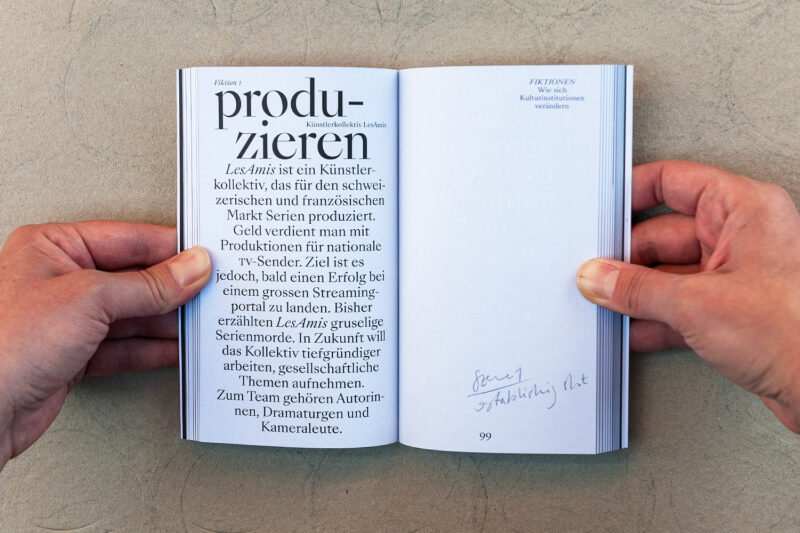 Fiktion 1
produ-
Künstlerkollektiv LesAmis
zieren
LesAmis ist ein Künstler-
kollektiv, das für den schwei-
zerischen und französischen
Markt Serien produziert.
Geld verdient man mit
Produktionen für nationale
TV-Sender. Ziel ist es
jedoch, bald einen Erfolg bei
einem grossen Streaming-
portal zu landen. Bisher
erzählten LesAmis gruselige
Serienmorde. In Zukunft will
das Kollektiv tiefgründiger
arbeiten, gesellschaftliche
Themen aufnehmen.
Zum Team gehören Autorin-
nen, Dramaturgen und
Kameraleute.
FIKTIONEN
Wie sich
Kulturinstitutionen
verändern
establishing shot
99